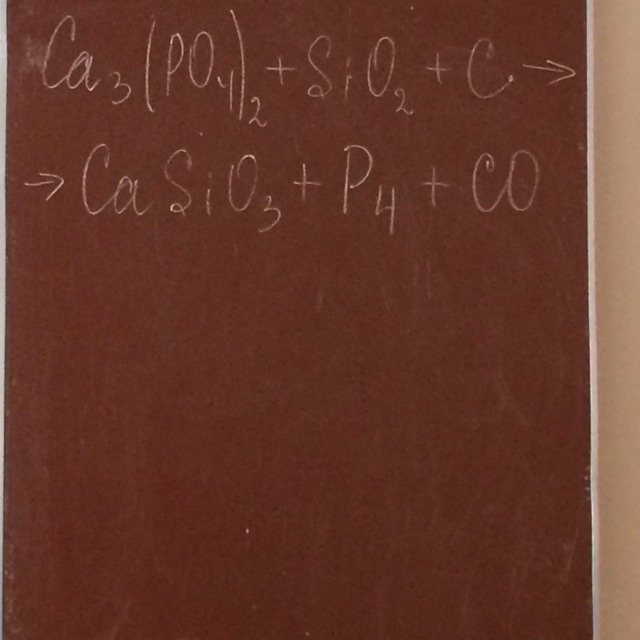 Ca₃(PO₄)₂ + SiO₂ + C →
→ CaSiO₃ + P₄ + CO